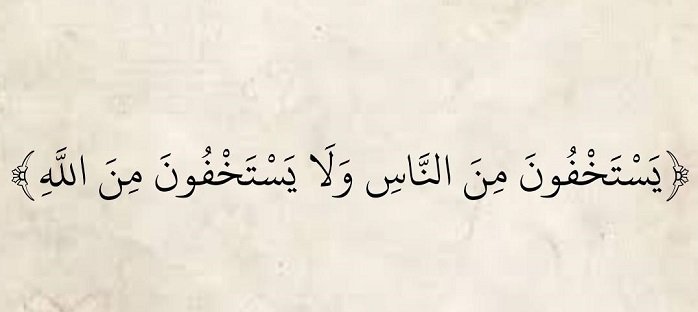 ﴿يَسْتَخْفُونَ مِنَ النَّاسِ وَلَا يَسْتَخْفُونَ مِنَ اللَّهِ﴾